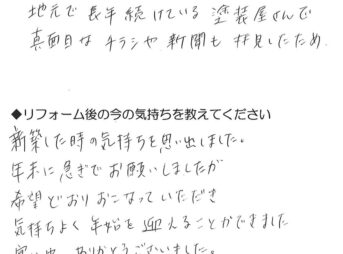 地元で長年続けている塗装屋さんで
真面目なチラシや新聞も拝見したため
◆リフォーム後の今の気持ちを教えてください
新築した時の気持ちを思い出しました。
年末に急ぎでお願いしましたが
希望どおりおこなっていただき
気持ちよく年始を迎えることができました
ありがとうございました。